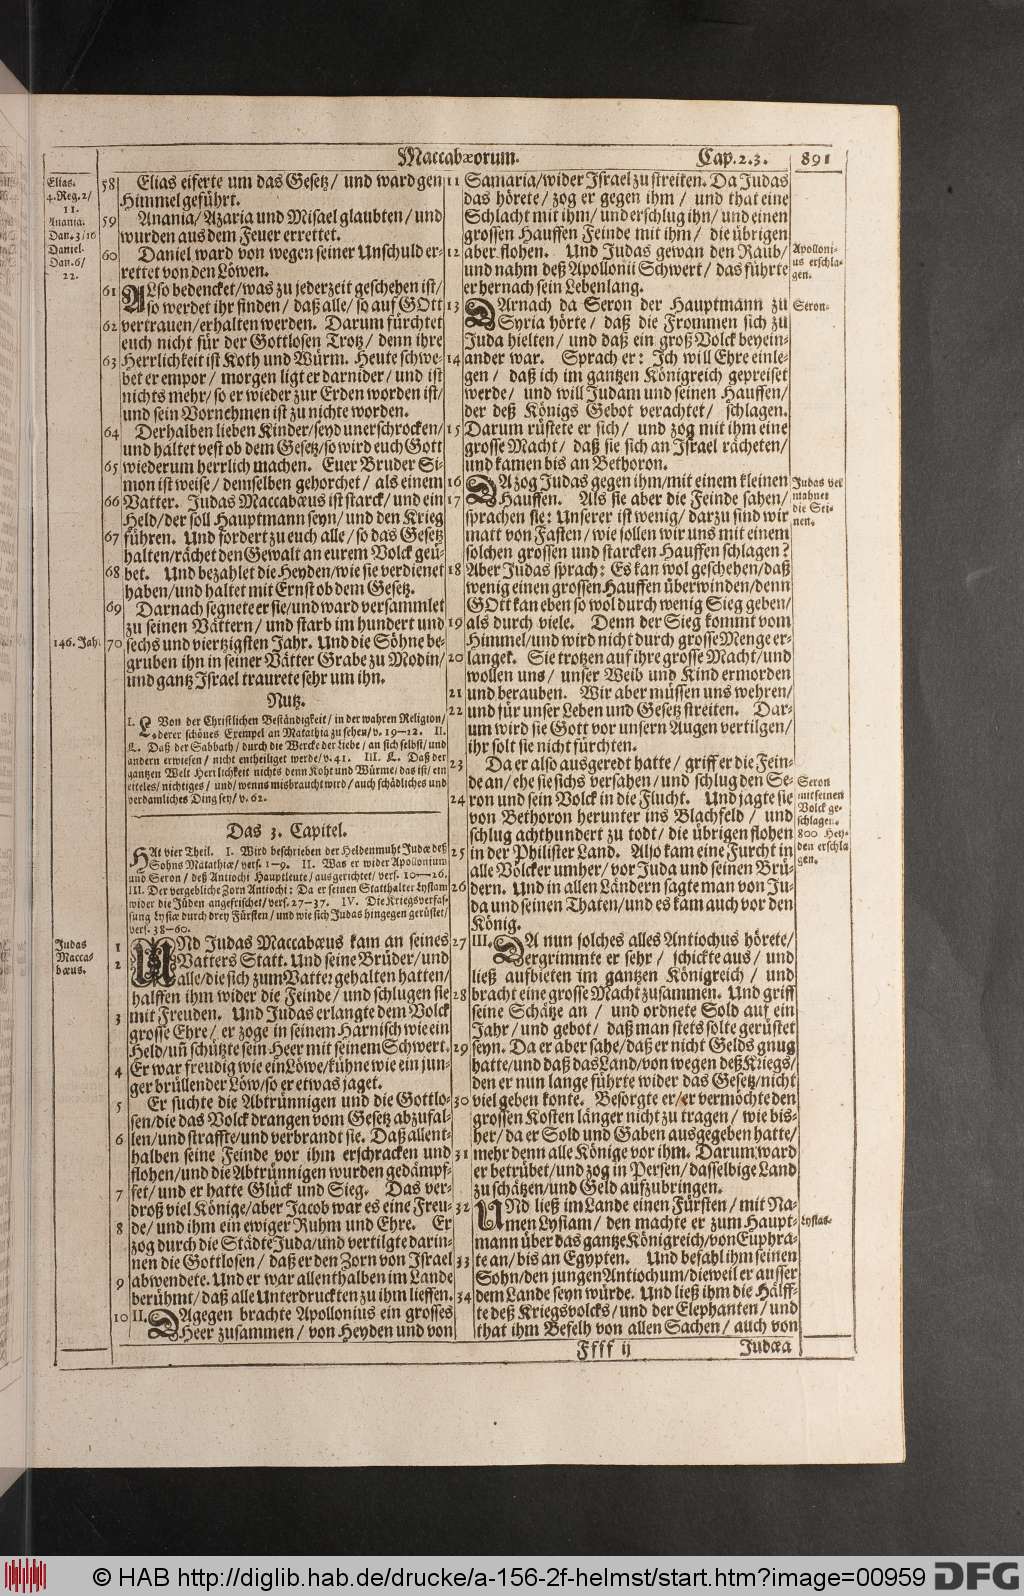 Maccabæorum.
Cap. 2. 3.
891
Elias.
4. Reg. 2/
11.
Anania.
Dan. 3/16
Daniel.
Dan. 6/
22.
146. Jah.
Judas
Macca-
bæus.
58 Elias eiferte um das Gesetz/ und ward gen
Himmel geführt.
59 Anania/ Azaria und Misael glaubten/ und
wurden aus dem Feuer errettet.
60 Daniel ward von wegen seiner Unschuld er-
rettet von den Löwen.
61 Also bedencket/ was zu jederzeit geschehen ist/
so werdet ihr finden/ daß alle/ so auf GOtt
62 vertrauen/ erhalten werden. Darum fürchtet
euch nicht für der Gottlosen Trotz/ denn ihre
63 Herrlichkeit ist Koth und Würm. Heute schwe-
bet er empor/ morgen ligt er darnider/ und ist
nichts mehr/ so er wieder zur Erden worden ist/
und sein Vornehmen ist zu nichte worden.
64 Derhalben lieben Kinder/ seyd unerschrocken/
und haltet vest ob dem Gesetz/ so wird euch Gott
65 wiederum herrlich machen. Euer Bruder Si-
mon ist weise/ demselben gehorchet/ als einem
66 Vatter. Judas Maccabæus ist starck/ und ein
Held/ der soll Hauptmann seyn/ und den Krieg
67 führen. Und fordert zu euch alle/ so das Gesetz
halten/ rächet den Gewalt an eurem Volck geü-
68 bet. Und bezahlet die Heyden/ wie sie verdienet
haben/ und haltet mit Ernst ob dem Gesetz.
69 Darnach segnete er sie/ und ward versammlet
zu seinen Vättern/ und starb im hundert und
70 sechs und viertzigsten Jahr. Und die Söhne be-
gruben ihn in seiner Vätter Grabe zu Modin/
und gantz Israel traurete sehr um ihn.
Nutz.
I. L. Von der Christlichen Beständigkeit/ in der wahren Religion/
derer schönes Exempel an Matathia zu sehen/ v. 19–12. II.
L. Daß der Sabbath/ durch die Wercke der Liebe/ an sich selbst/ und
andern erwiesen/ nicht entheiliget werde/ v. 41. III. L. Daß der
gantzen Welt Herrlichkeit nichts denn Koht und Würme/ das ist/ ein
eiteles/ nichtiges/ und/ wenns misbraucht wird/ auch schädliches und
verdamliches Ding sey/ v. 62.
Das 3. Capitel.
HAt vier Theil. I. Wird beschrieben der Heldenmuht Judæ deß
Sohns Matathiæ/ vers. 1–9. II. Was er wider Apollonium
und Seron/ deß Antiochi Hauptleute/ ausgerichtet/ vers. 10–26.
III. Der vergebliche Zorn Antiochi: Da er seinen Statthalter Lysiam
wider die Jüden angefrischet/ vers. 27–37. IV. Die Kriegsverfas-
sung Lysiæ durch drey Fürsten/ und wie sich Judas hingegen gerüstet/
vers. 38–60.
1 UNd Judas Maccabæus kam an seines
2 Vatters Statt. Und seine Brüder/ und
alle/ die sich zum Vatter gehalten hatten/
halffen ihm wider die Feinde/ und schlugen sie
3 mit Freuden. Und Judas erlangte dem Volck
grosse Ehre/ er zoge in seinem Harnisch wie ein
Held/ uñ schützte sein Heer mit seinem Schwert.
4 Er war freudig wie ein Löwe/ kühne wie ein jun-
ger brüllender Löw/ so er etwas jaget.
5 Er suchte die Abtrünnigen und die Gottlo-
sen/ die das Volck drangen vom Gesetz abzufal-
6 len/ und straffte/ und verbrandt sie. Daß allent-
halben seine Feinde vor ihm erschracken und
flohen/ und die Abtrünnigen wurden gedämpf-
7 fet/ und er hatte Glück und Sieg. Das ver-
droß viel Könige/ aber Jacob war es eine Freu-
8 de/ und ihm ein ewiger Ruhm und Ehre. Er
zog durch die Städte Juda/ und vertilgte darin-
nen die Gottlosen/ daß er den Zorn von Israel
9 abwendete. Und er war allenthalben im Lande
berühmt/ daß alle Unterdruckten zu ihm lieffen.
10 II. DAgegen brachte Apollonius ein grosses
Heer zusammen/ von Heyden und von
11 Samaria/ wider Israel zu streiten. Da Judas
das hörete/ zog er gegen ihm/ und that eine
Schlacht mit ihm/ und erschlug ihn/ und einen
grossen Hauffen Feinde mit ihm/ die übrigen
12 aber flohen. Und Judas gewan den Raub/
und nahm deß Apollonii Schwert/ das führte
er hernach sein Lebenlang.
13 DArnach da Seron der Hauptmann zu
Syria hörte/ daß die Frommen sich zu
Juda hielten/ und daß ein groß Volck beyein-
14 ander war. Sprach er: Ich will Ehre einle-
gen/ daß ich im gantzen Königreich gepreiset
werde/ und will Judam und seinen Hauffen/
der deß Königs Gebot verachtet/ schlagen.
15 Darum rüstete er sich/ und zog mit ihm eine
grosse Macht/ daß sie sich an Israel rächeten/
und kamen bis an Bethoron.
16 DA zog Judas gegen ihm/ mit einem kleinen
17 Hauffen. Als sie aber die Feinde sahen/
sprachen sie: Unserer ist wenig/ darzu sind wir
matt von Fasten/ wie sollen wir uns mit einem
solchen grossen und starcken Hauffen schlagen?
18 Aber Judas sprach: Es kan wol geschehen/ daß
wenig einen grossen Hauffen überwinden/ denn
GOtt kan eben so wol durch wenig Sieg geben/
19 als durch viele. Denn der Sieg kommt vom
Himmel/ und wird nicht durch grosse Menge er-
20 langet. Sie trotzen auf ihre grosse Macht/ und
wollen uns/ unser Weib und Kind ermorden
21 und berauben. Wir aber müssen uns wehren/
22 und für unser Leben und Gesetz streiten. Dar-
um wird sie Gott vor unsern Augen vertilgen/
ihr solt sie nicht fürchten.
23 Da er also ausgeredt hatte/ griff er die Fein-
de an/ ehe sie sichs versahen/ und schlug den Se-
24 ron und sein Volck in die Flucht. Und jagte sie
von Bethoron herunter ins Blachfeld/ und
schlug achthundert zu todt/ die übrigen flohen
25 in der Philister Land. Also kam eine Furcht in
alle Völcker umher/ vor Juda und seinen Brü-
26 dern. Und in allen Ländern sagte man von Ju-
da und seinen Thaten/ und es kam auch vor den
König.
27 III. DA nun solches alles Antiochus hörete/
ergrimmte er sehr/ schickte aus/ und
ließ aufbieten im gantzen Königreich/ und
28 bracht eine grosse Macht zusammen. Und griff
seine Schätze an/ und ordnete Sold auf ein
Jahr/ und gebot/ daß man stets solte gerüstet
29 seyn. Da er aber sahe/ daß er nicht Gelds gnug
hatte/ und daß das Land/ von wegen deß Kriegs/
den er nun lange führte wider das Gesetz/ nicht
30 viel geben konte. Besorgte er/ er vermöchte den
grossen Kosten länger nicht zu tragen/ wie bis-
her/ da er Sold und Gaben ausgegeben hatte/
31 mehr denn alle Könige vor ihm. Darum ward
er betrübet/ und zog in Persen/ dasselbige Land
zu schätzen/ und Geld aufzubringen.
32 UNd ließ im Lande einen Fürsten/ mit Na-
men Lysiam/ den machte er zum Haupt-
mann über das gantze Königreich/ von Euphra-
33 te an/ bis an Egypten. Und befahl ihm seinen
Sohn/ den jungen Antiochum/ dieweil er ausser
34 dem Lande seyn würde. Und ließ ihm die Hälff-
te deß Kriegsvolcks/ und der Elephanten/ und
that ihm Befelh von allen Sachen/ auch von
Apolloni-
us erschla-
gen.
Seron.
Judas ver
mahnet
die Sei-
nen.
Seron
mit seinem
Volck ge-
schlagen.
800 Hey-
den erschla
gen.
Lysias.
Ffff ij
Judæa
© HAB http://diglib.hab.de/drucke/a-156-2f-helmst/start.htm?image=00959
DFG